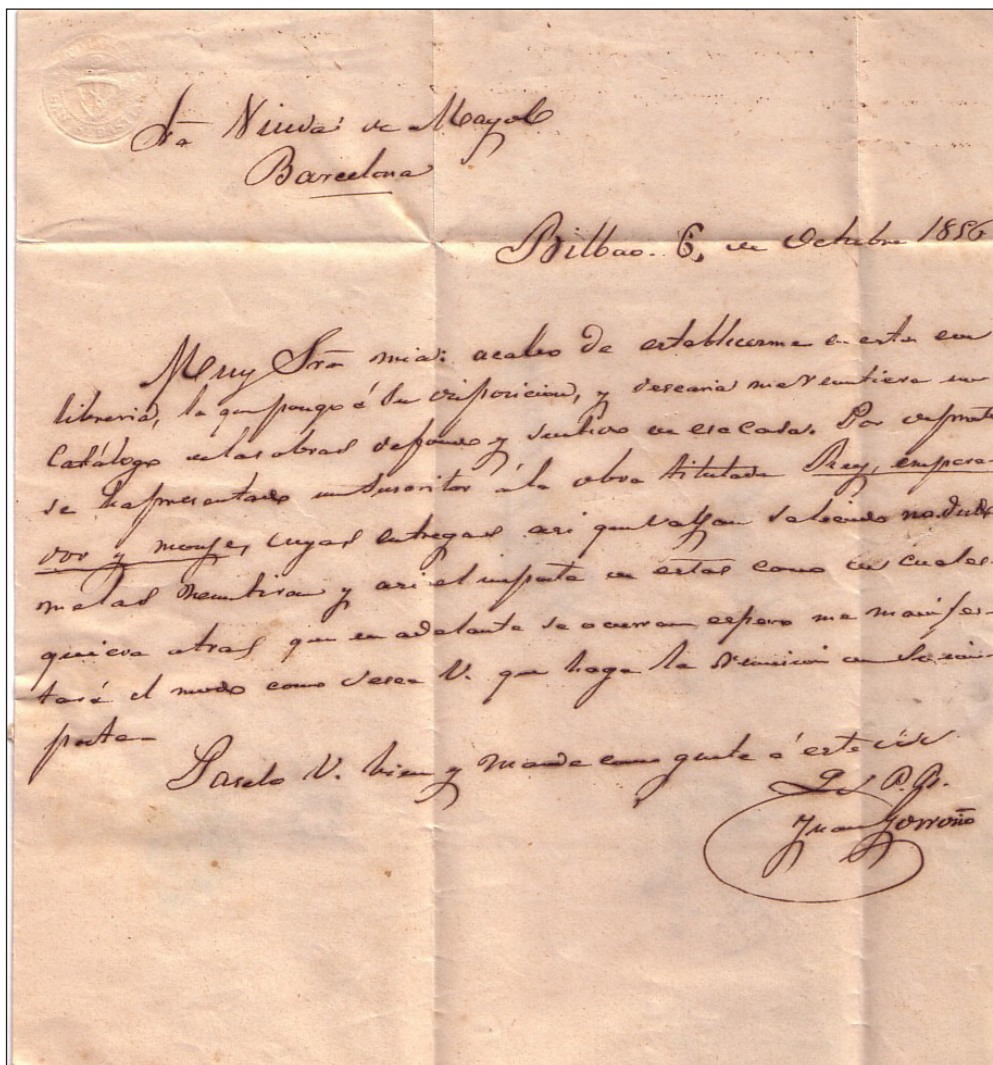 Sra Viuda de Mayol
Barcelona
Bilbao. 6, de Octubre 1856
Muy Sra mia: acabo de establecerme en esta con
libreria, la que pongo á su disposicion, y desearia me remitiera un
Catálogo de las obras de fondo y surtido de esa Casa. Por de pronto
se ha presentado un suscritor á la obra titulada Rey, empera-
dor y monje, cuyas entregas asi que vayan saliendo no dudo
me las remitirá y asi el importe de estas como de cuales-
quiera otras que en adelante se ocurran espero me manifes-
tará el modo como desea V. que haga la remision de su im-
porte.
Páselo V. bien y mande como guste á este
Juan Gorroño